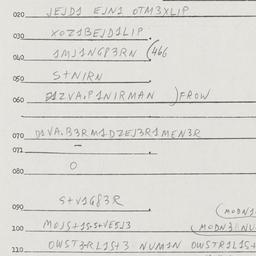 020 JEJD1 EJN1 OTM3XLIP
030 XOZ1BEJD1LIP.
040 1MJ1NG83RN (466
050 S+NIRN
060 D1ZVA.P1NIRMAN )FROW
070 D1VA.B3RM1DZEJ3R1MEN3R
071 -
080 O
090 S+V1G83R (MODN1
100 MOJS+1S.S+VE5J3 (MODN3 NU
110 OWST3RL1S+3 NUM1N OWSTR1L1S+